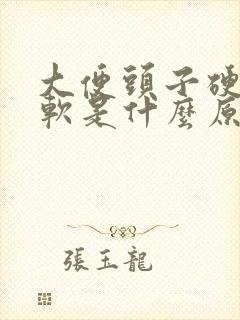 大便頭子硬
軟是什麼原
張玉龍